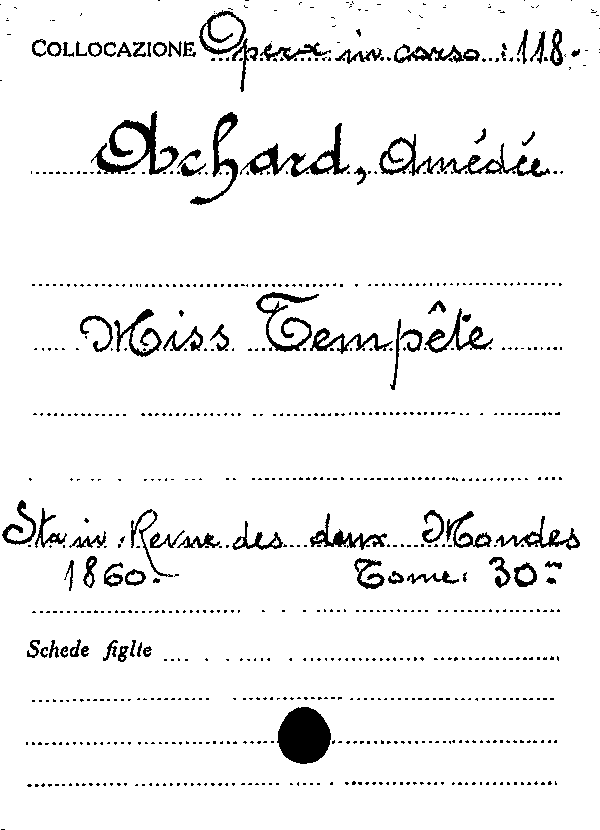 COLLOCAZIONE Opera in corso: 118.
Achard, Amédée
Miss Tempête
Sta in: Revue des deux Mondes
1860. Tome: 30me
Schede figlie